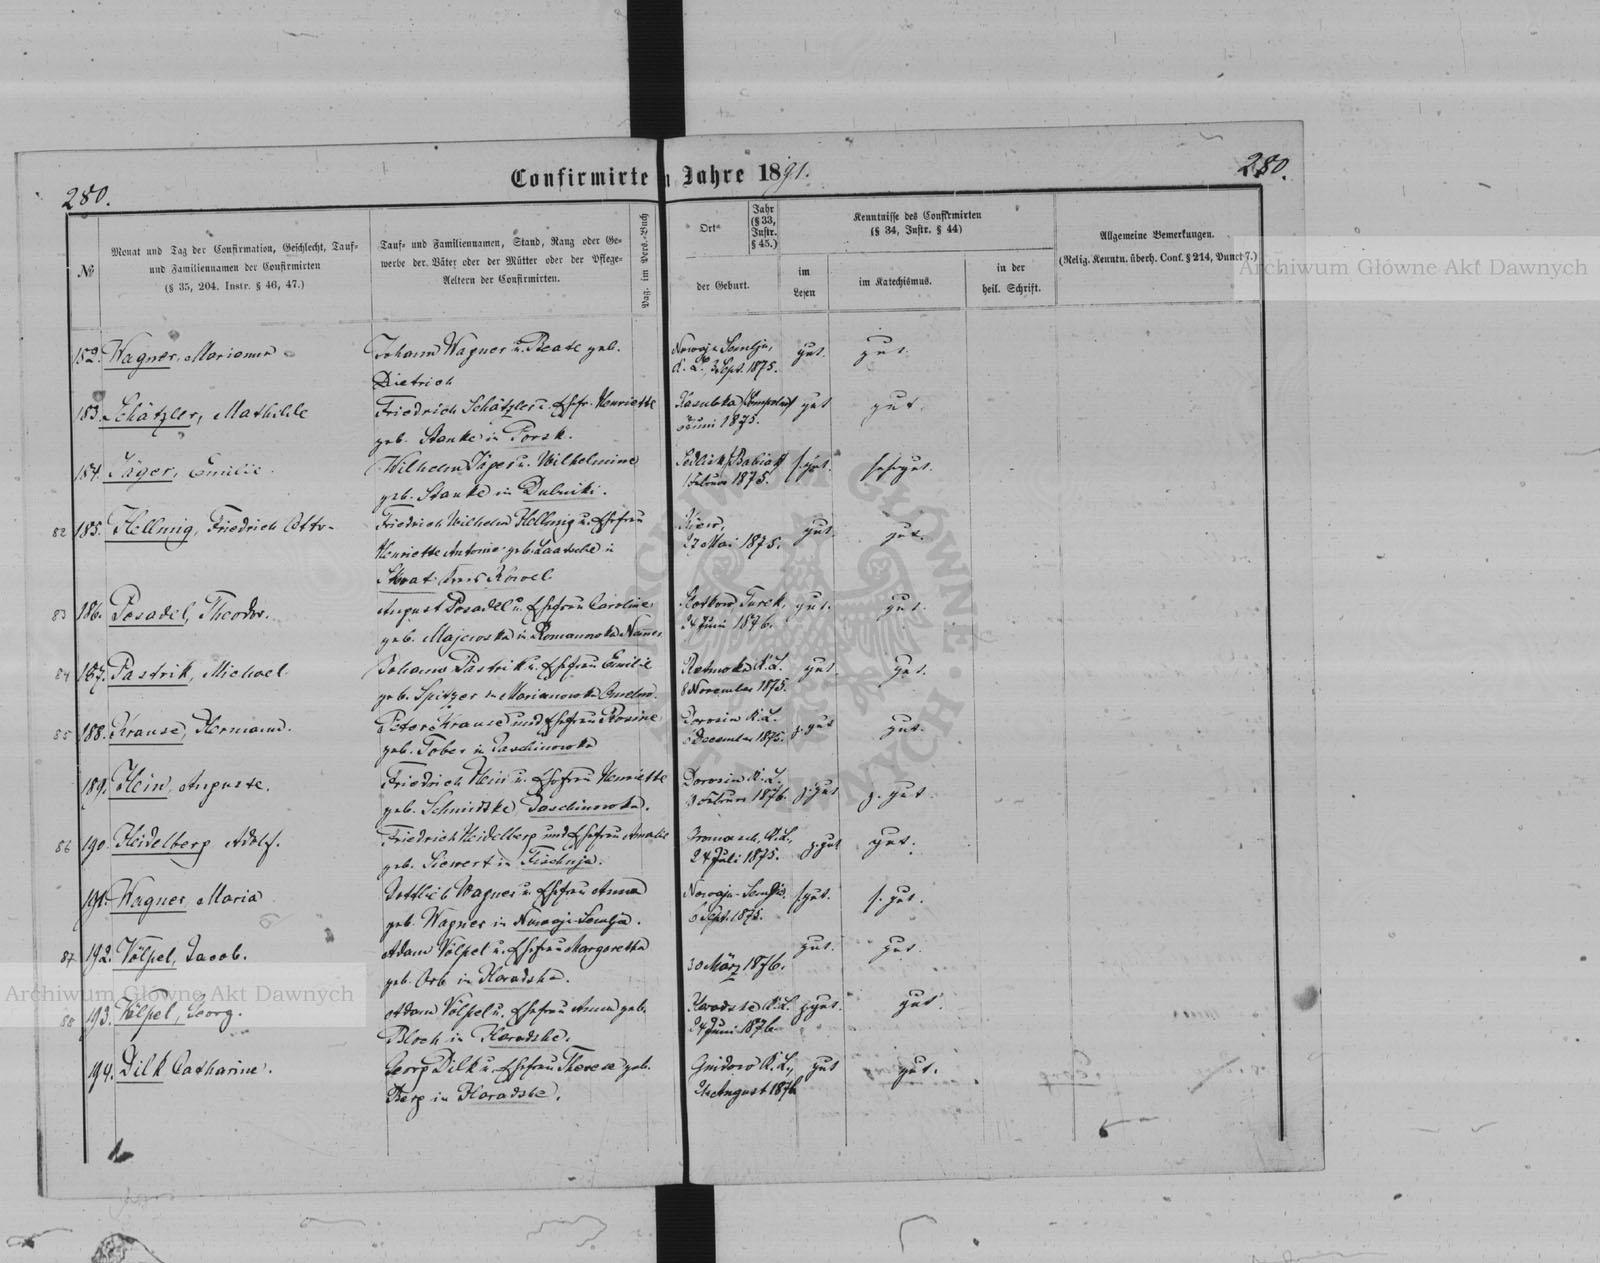 280.
Confirmirte n Jahre 1891.
280.
№
Monat und Tag der Confirmation, Geschlecht, Tauf-
und Familiennamen der Confirmirten
(§ 35, 204. Instr. § 46, 47.)
Tauf- und Familiennamen, Stand, Rang oder Ge-
werbe der Väter oder der Mütter oder der Pflege-
Aeltern der Confirmirten.
Pag. im Pers.-Buch
Ort
Jahr
(§ 33,
Instr.
§ 45.)
der Geburt.
Kenntnisse des Confirmirten
(§ 34, Instr. § 44)
im
Lesen
im Katechismus.
in der
heil. Schrift.
Allgemeine Bemerkungen.
(Relig. Kenntn. überh. Conf. § 214, Punct 7.)
Archiwum Główne Akt Dawnych
182. Wagner, Marianna
Johann Wagner u. Beate geb.
Dietrich
Sept. 1875.
gut. gut.
183. Schätzler, Mathilde
Friedrich Schätzler u. Ehefr. Henriette
geb. Stanke in Torsk.
Juni 1875.
gut gut.
184. Jäger, Emilie
Wilhelm Jäger u. Wilhelmine
geb. Stanke in Dubniki.
1 Februar 1875.
s. gut. sehr gut.
82 185. Hellmig, Friedrich Otto
Friedrich Wilhelm Hellmig u. Ehefrau
Henriette Antonie geb. in
Kowel
Kiew,
27 Mai 1875.
gut. gut.
83 186. Posadel, Theodor.
August Posadel u. Ehefrau Caroline
geb. Majewska in Romanowka
Turek,
24 Juni 1876.
gut. gut.
84 187. Pastrik, Michael
Johann Pastrik u. Ehefrau Emilie
geb. Spitzer in Marianowka
K. L.
8 November 1875.
gut gut.
85 188. Krause, Hermann.
Peter Krause und Ehefrau Rosine
geb. Tober in Taschinowka
Dorosin K. L.
December 1875.
z. gut gut.
189. Hein, Auguste.
Friedrich Hein u. Ehefrau Henriette
geb. Schmidtke, Taschinowka.
Dorosin K. L.
Februar 1876.
z. gut z. gut.
86 190. Heidelberg Adolf.
Friedrich Heidelberg und Ehefrau Amalie
geb. Siewert in
K. L.,
24 Juli 1875.
z. gut gut.
191. Wagner, Maria
Gottlieb Wagner u. Ehefrau Anna
geb. Wagner in Nowaja-Semlja.
Nowaja-Semlja
6 Sept. 1875.
s. gut. s. gut.
87 192. Völpel, Jacob.
Adam Völpel u. Ehefrau Margaretha
geb. Orb in Haradshe.
30 März 1876.
gut. gut.
Archiwum Główne Akt Dawnych
88 193. Völpel, Georg.
Adam Völpel u. Ehefrau Anna geb.
Bloch in Haradshe.
Haradshe K. L.
24 Juni 1876
z. gut. gut
194. Dilk Catharine.
Georg Dilk u. Ehefrau Therese geb.
Berg in Haradshe.
Gnidow K. L.,
August 1876
gut gut.